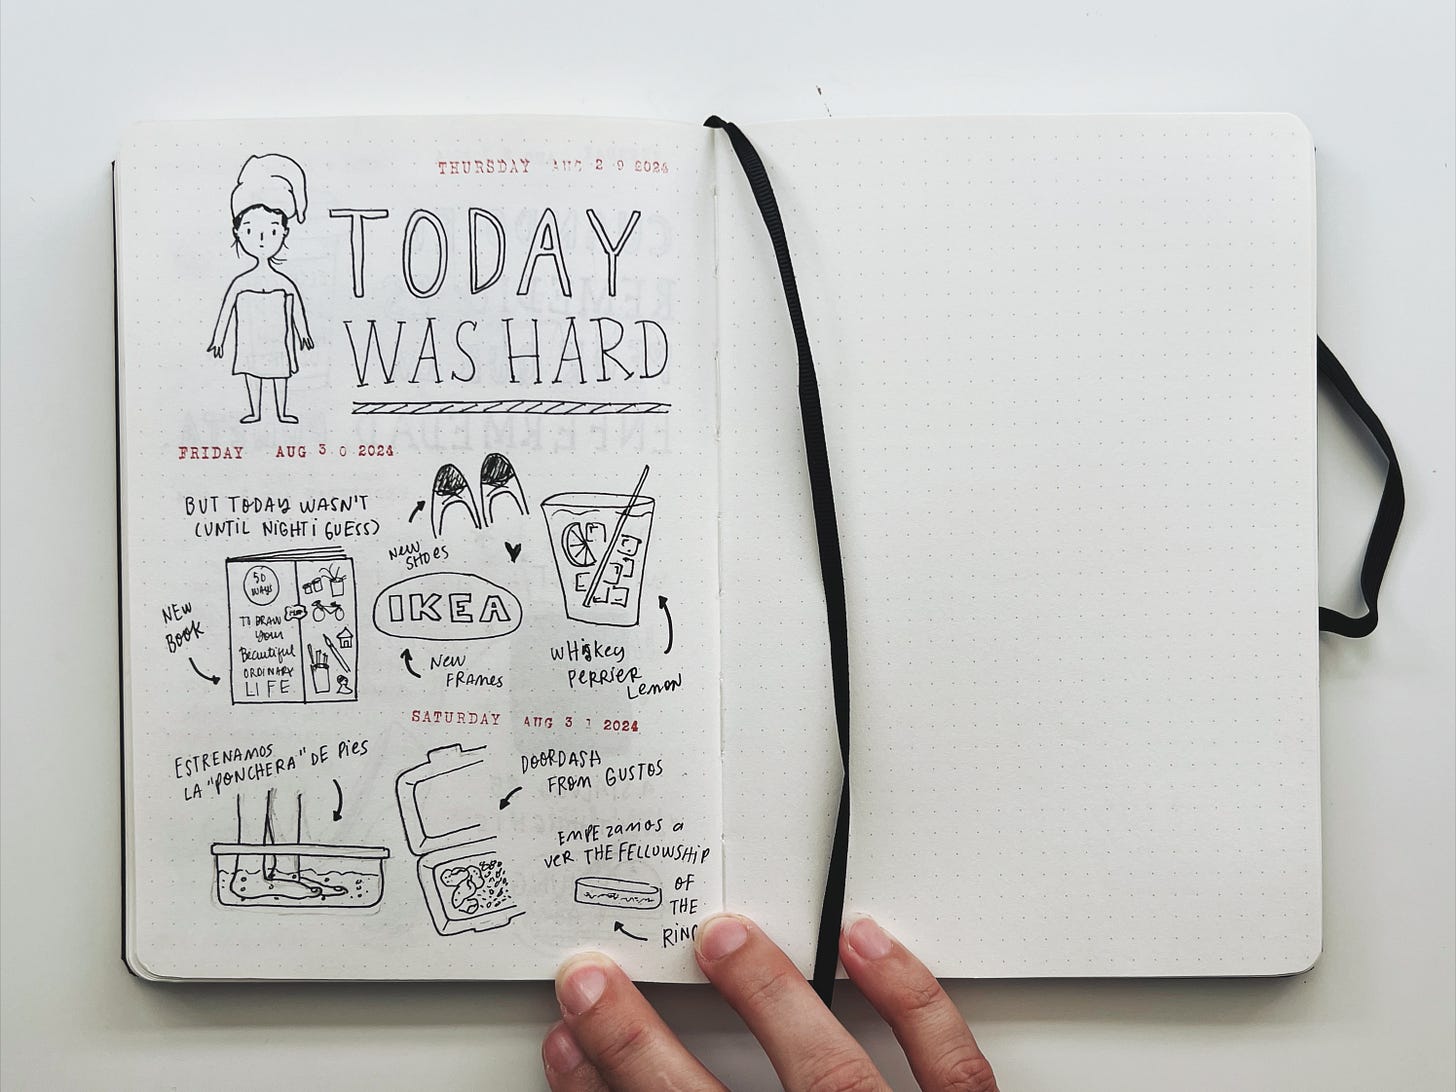 THURSDAY AUG 29 2024
TODAY
WAS HARD
FRIDAY AUG 30 2024
BUT TODAY WASN'T
(UNTIL NIGHT i GUESS)
NEW
SHOES
NEW
BOOK
50
WAYS
TO DRAW
Your
Beautiful
ORDINARY
LIFE
IKEA
NEW
FRAMES
WHISKEY
PERRIER
LEMON
SATURDAY AUG 31 2024
ESTRENAMOS
LA "PONCHERA" DE PIES
DOORDASH
FROM GUSTOS
EMPEZAMOS A
VER THE FELLOWSHIP
OF
THE
RING